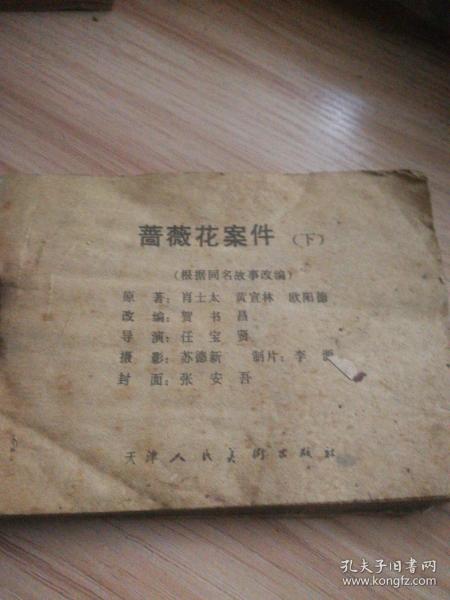 蔷薇花案件（下）
（根据同名故事改编）
原 著：肖士太 黄宣林 欧阳德
改 编：贺书昌
导 演：任宝贤
摄 影：苏德新 制片：李
封 面：张安吾
天津人民美术出版社
孔夫子旧书网
www.kongfz.com